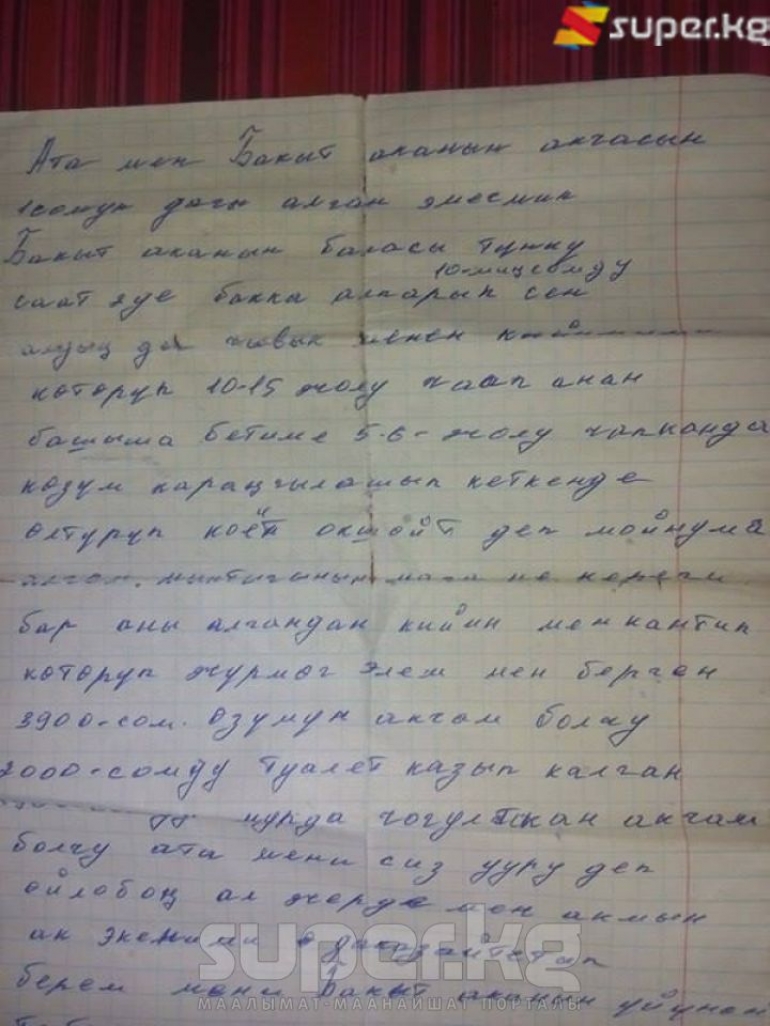 super.kg
Ата мен Бакыт аканын акчасын
1 сомун дагы алган эмесмин
Бакыт аканын баласы түнкү
10-миң сомду
саат эде бакка апарып сен
алдың да чывык менен
которуп 10-15 жолу чаап анан
башыма бетиме 5-6-жолу чапканда
көзүм караңгылашып кеткенде
өлтүрүп коёт окшойт деп мойнума
алгам. мага не кереги
бар аны алгандан кийин мен кантип
которуп жүрмөг элем мен берген
3900-сом. өзүмүн акчам болчу
2000-сомду туалет казып калган
мурда чогулткан акчам
болчу ата мени сиз ууру деп
ойлобоң ал жерде мен акмын
ак экенимди
берем мени Бакыт аканын үйүнөн
super.kg
МААЛЫМАТ-МААНАЙШАТ ПОРТАЛЫ